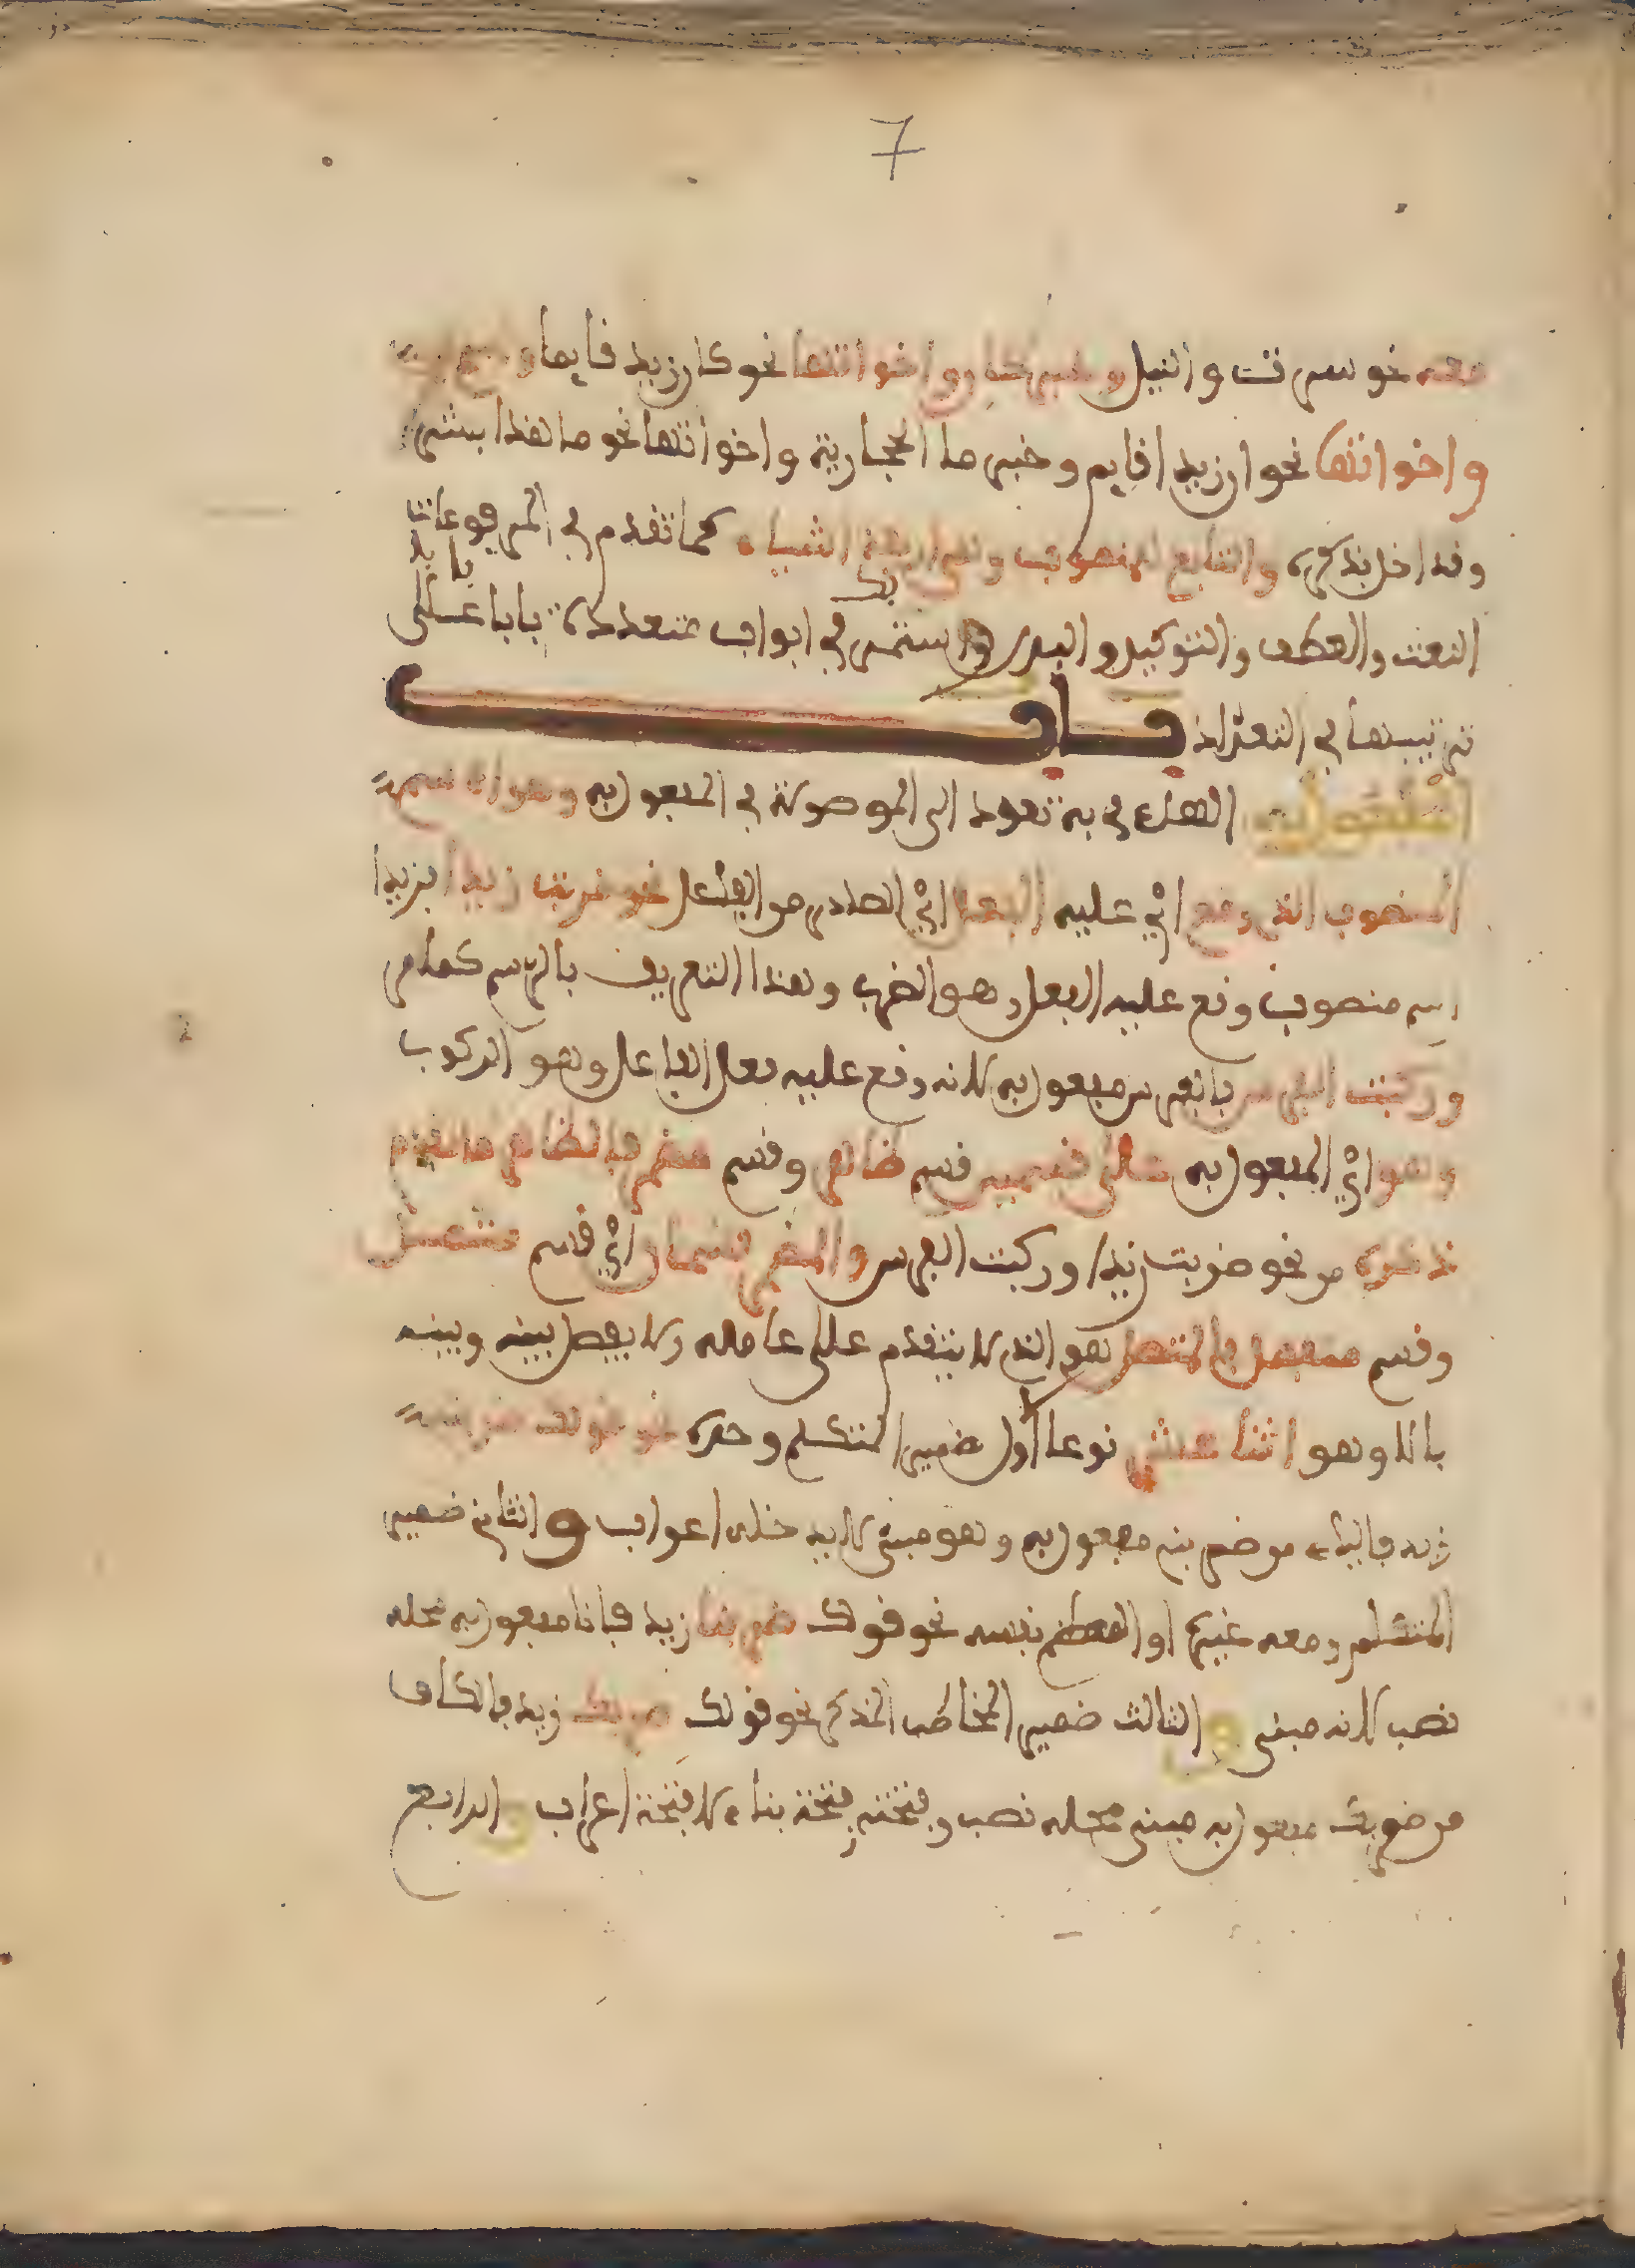 7
معه نحو سرت والنيل وخبر كان واخواتها نحو كان زيد قايما واسم ان
واخواتها نحو ان زيدا قايم وخبر ما الحجازية واخواتها نحو ما هذا بشرا
وقد اخل بذكره والتابع للمنصوب وهو اربعة اشياء كما تقدم في المرفوعات
النعت والعطف والتوكيد والبدل وستمر بك في ابواب متعددة بابا بابا على
ترتيبها في التعداد باب
المفعول به الهاء في به تعود الى الموصولة في المفعول به وهو الاسم
المنصوب الذي وقع اي عليه الفعل اي الصادر من الفاعل نحو ضربت زيدا فزيدا
اسم منصوب وقع عليه الفعل وهو الضرب وهذا التعريف بالرسم كما مر
وركبت الفرس فالفرس مفعول به لانه وقع عليه فعل الفاعل وهو الركوب
وهو اي المفعول به على قسمين قسم ظاهر وقسم مضمر فالظاهر ما تقدم
ذكره من نحو ضربت زيدا وركبت الفرس والمضمر قسمان اي قسم متصل
وقسم منفصل فالمتصل هو الذي لا يتقدم على عامله ولا يفصل بينه وبينه
بالا وهو اثنا عشر نوعا الاول ضمير المتكلم وحده نحو قولك ضربني
زيد فالياء من ضربني مفعول به وهو مبني لا يدخله اعراب والثاني ضمير
المتكلم ومعه غيره او المعظم نفسه نحو قولك ضربنا زيد فنا مفعول به محله
نصب لانه مبني والثالث ضمير المخاطب المذكر نحو قولك ضربك زيد فالكاف
من ضربك مفعول به مبني محله نصب وفتحته فتحة بناء لا فتحة اعراب والرابع